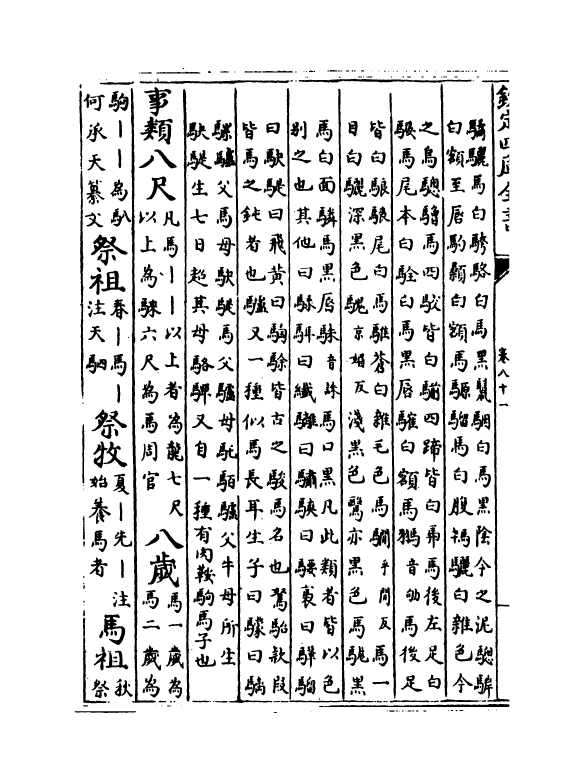 欽定四庫全書
卷八十一
驪馬白跨駱白馬黑鬛駰白馬黑陰今之泥驄騂
白額至唇駒顙白額馬騵騮馬白腹驪白雜色今
之烏驄騽馬四骹皆白騚四蹄皆白馵馬後左足白
騴馬尾本白駩白馬黑唇白額馬音劬馬後足
皆白騡騡尾白馬騅蒼白雜毛色馬騆乎間反馬一
目白驪深黑色騩京媚反淺黑色亦黑色馬騩黑
馬白面馬黑唇駯音誅馬口黑凡此類者皆以色
别之也其他曰騄駬曰纖離曰驌騻曰騕褭曰驊騮
曰駃騠曰飛黃曰騊駼皆古之駿馬名也駑駘欵段
皆馬之鈍者也驢又一種似馬長耳生子曰驟曰
騾驢父馬母駃騠馬父驢母馲驢父牛母所生
駃騠生七日超其母駱驒又自一種有肉鞍駒馬子也
事類八尺凡馬丨丨以上者為龍七尺
以上為騋六尺為馬周官八歲馬一歲為
馬二歲為
駒丨丨為
何承天纂文祭祖春丨馬丨
注天駟祭牧夏丨先丨注
始養馬者馬祖秋
祭